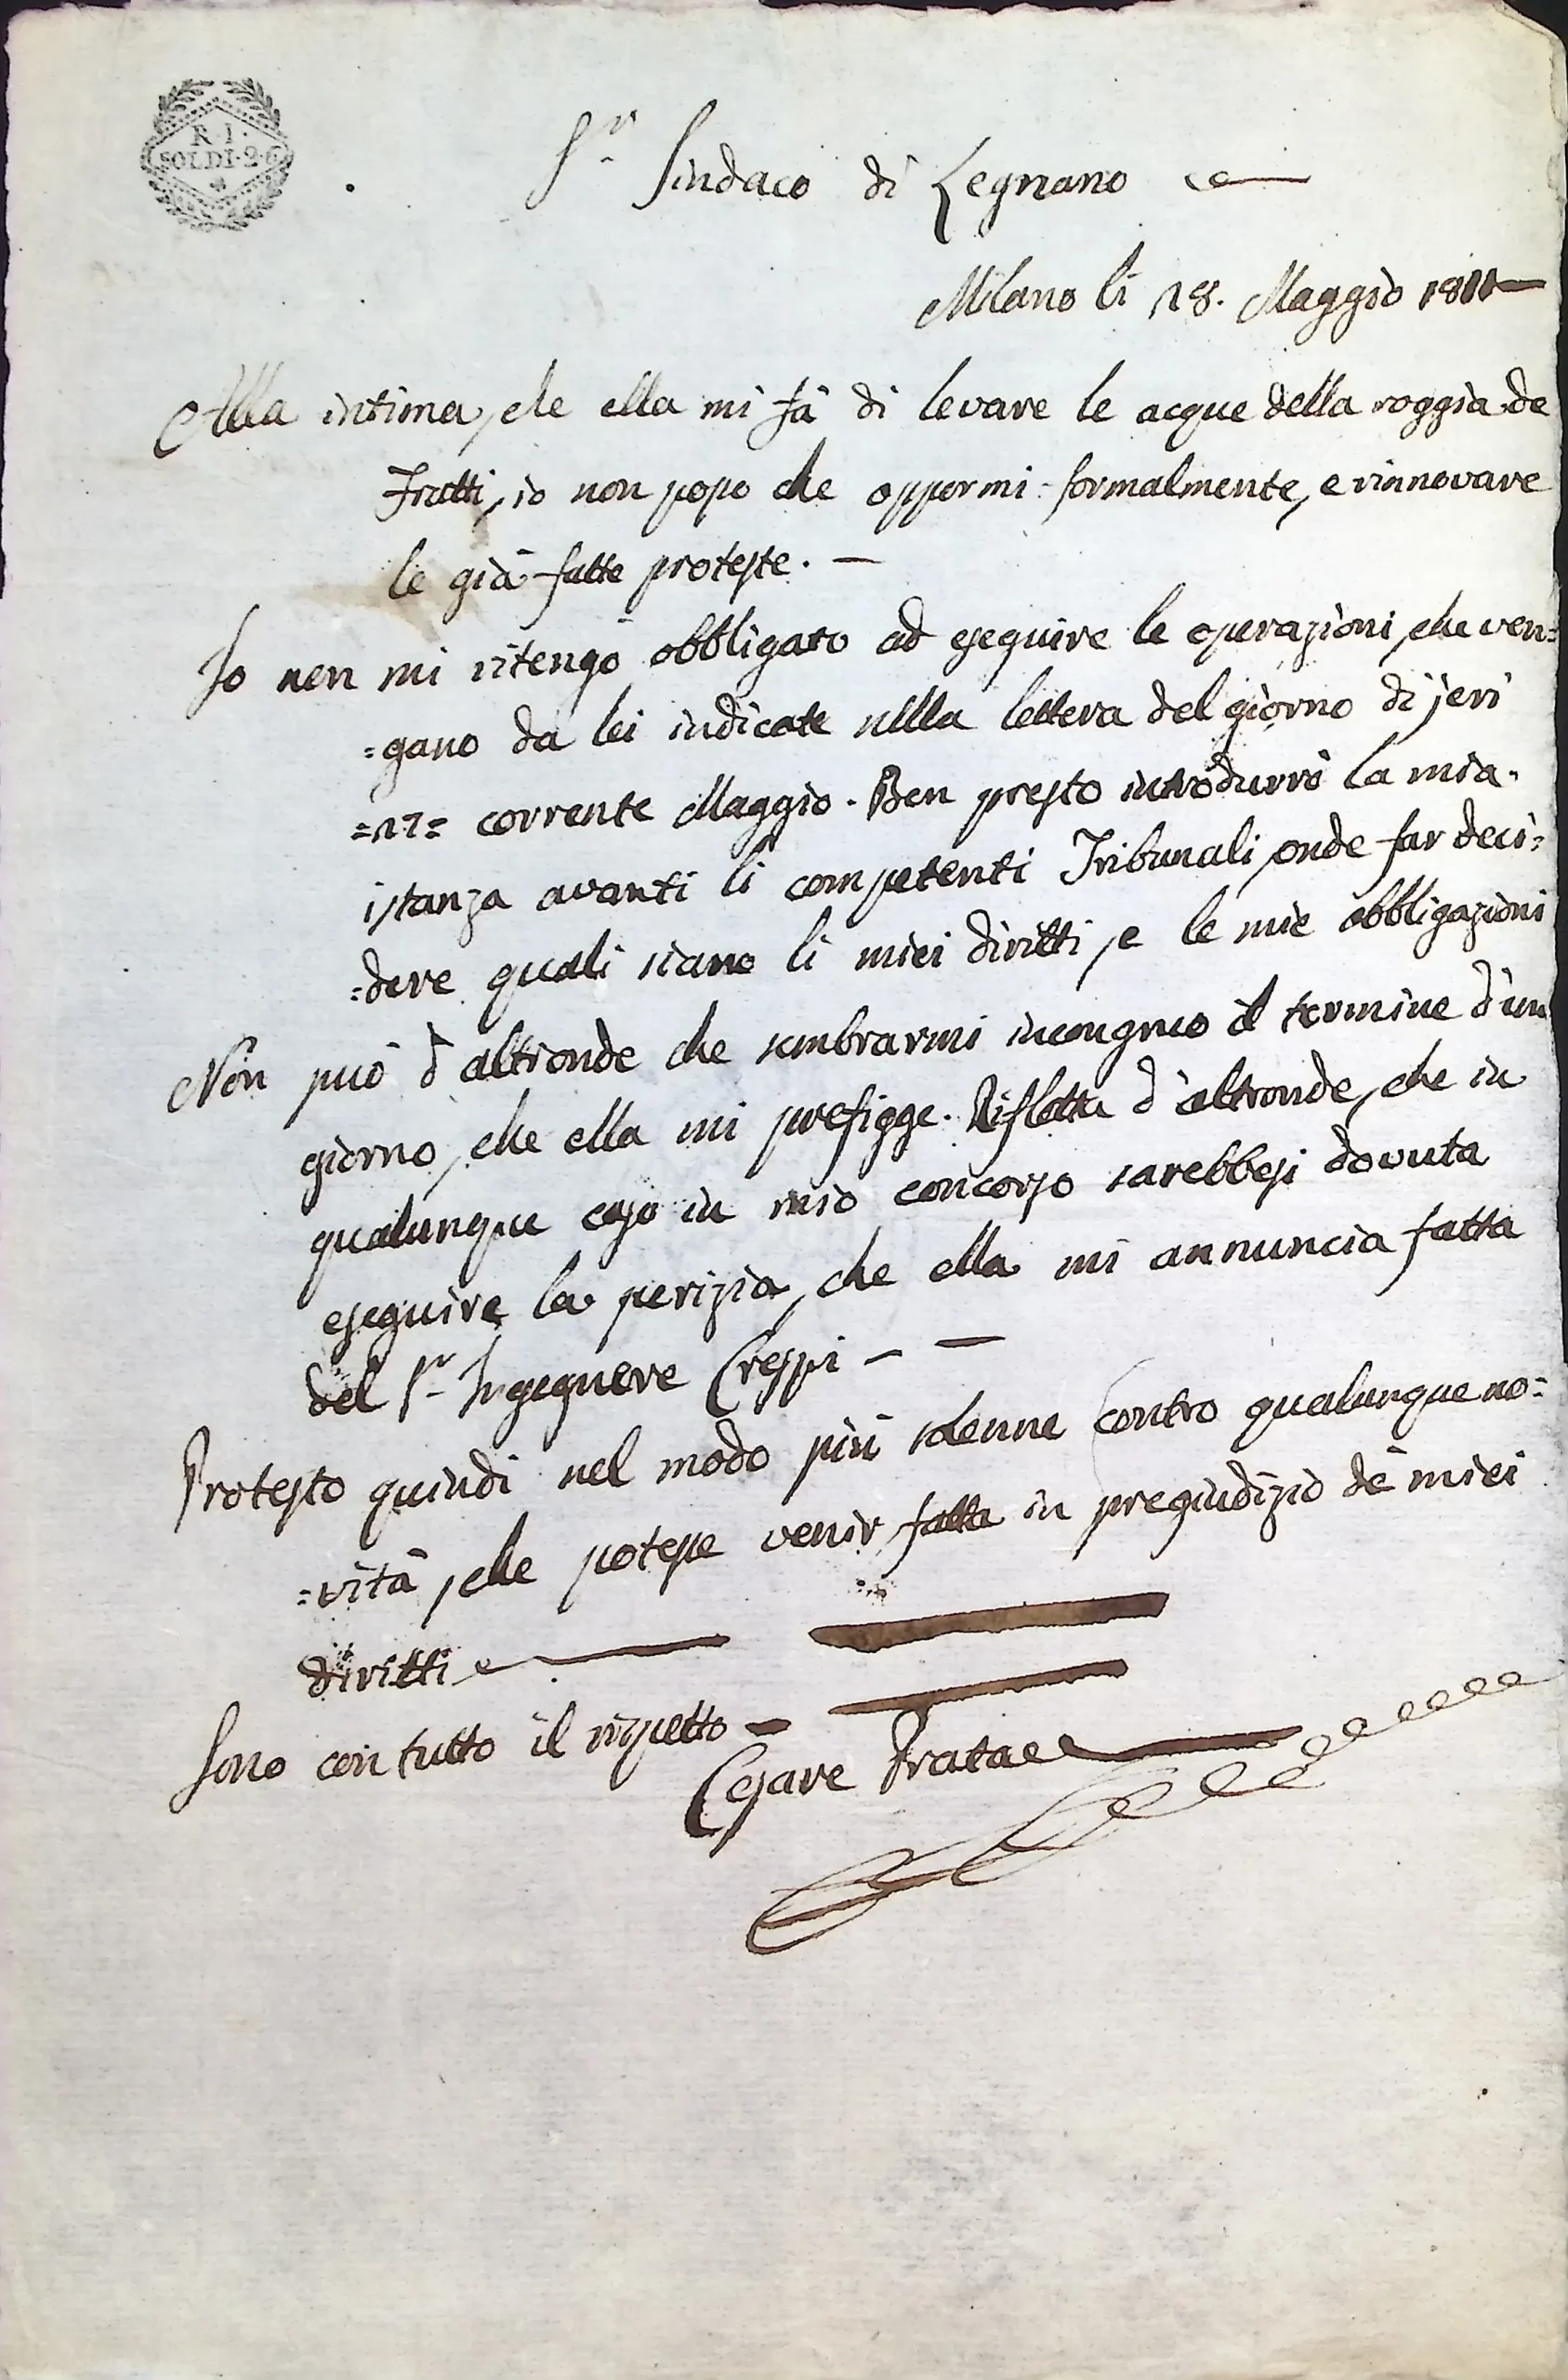 R. I.
SOLDI. 2. 6
Sr. Sindaco di Legnano
Milano li 18. Maggio 1811
Alla intima, che ella mi fà di levare le acque della roggia de
Fratti, io non posso che oppormi formalmente, e rinnovare
le già fatte proteste. —
Io non mi ritengo obbligato ad eseguire le operazioni, che ven=
=gano da lei indicate nella lettera del giorno di jeri
=17= corrente Maggio. Ben presto introdurrò la mia
istanza avanti li competenti Tribunali, onde far deci=
=dere quali siano li miei diritti, e le mie obbligazioni
Non può d'altronde che sembrarmi incongruo il termine d'un
giorno, che ella mi prefigge. Rifletta d'altronde, che in
qualunque caso in mio concorso sarebbesi dovuta
eseguire la perizia, che ella mi annuncia fatta
del Sr. Ingegnere Crespi — —
Protesto quindi nel modo più solenne contro qualunque no=
=vità, che potesse venir fatta in pregiudizio de' miei
diritti
Sono con tutto il rispetto —
Cesare